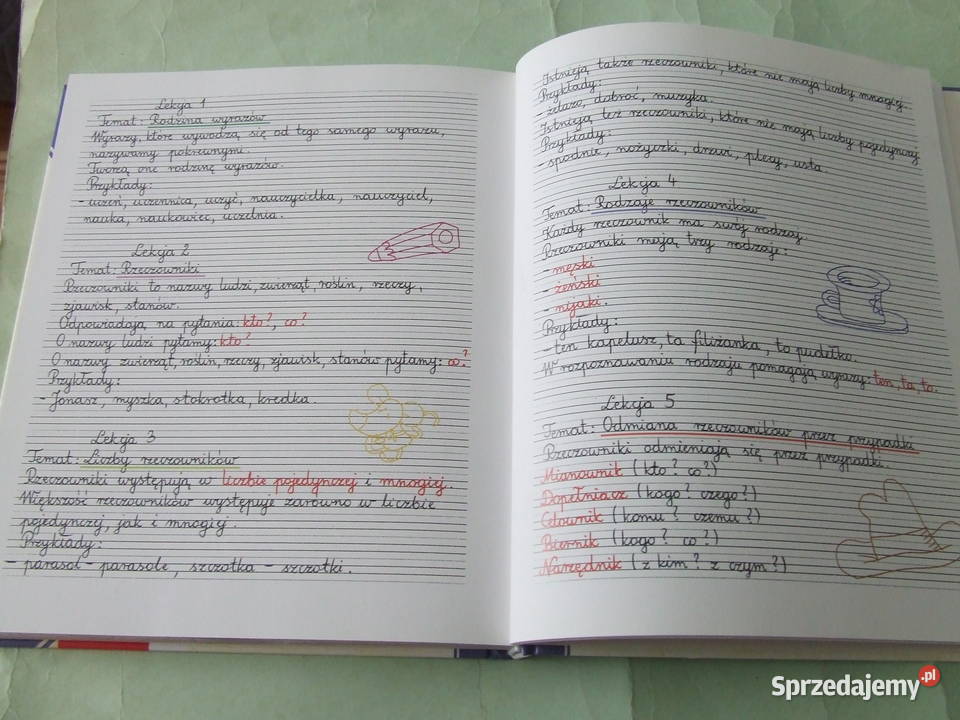 Lekcja 1
Temat: Rodzina wyrazów
Wyrazy, które wywodzą się od tego samego wyrazu,
nazywamy pokrewnymi.
Tworzą one rodzinę wyrazów.
Przykłady:
- uczeń, uczennica, uczyć, nauczycielka, nauczyciel,
nauka, naukowiec, uczelnia.
Lekcja 2
Temat: Rzeczowniki
Rzeczowniki to nazwy ludzi, zwierząt, roślin, rzeczy,
zjawisk, stanów.
Odpowiadają na pytania: kto?, co?
O nazwy ludzi pytamy: kto?
O nazwy zwierząt, roślin, rzeczy, zjawisk, stanów pytamy: co?
Przykłady:
- Jonasz, myszka, stokrotka, kredka.
Lekcja 3
Temat: Liczby rzeczowników
Rzeczowniki występują w liczbie pojedynczej i mnogiej.
Większość rzeczowników występuje zarówno w liczbie
pojedynczej, jak i mnogiej.
Przykłady:
- parasol - parasole, szczotka - szczotki.
Istnieją także rzeczowniki, które nie mają liczby mnogiej
Przykłady:
- żelazo, dobroć, muzyka.
Istnieją też rzeczowniki, które nie mają liczby pojedynczej
Przykłady:
- spodnie, nożyczki, drzwi, plecy, usta.
Lekcja 4
Temat: Rodzaje rzeczowników
Każdy rzeczownik ma swój rodzaj.
Rzeczowniki mają trzy rodzaje:
- męski
- żeński
- nijaki.
Przykłady:
- ten kapelusz, ta filiżanka, to pudełko.
W rozpoznawaniu rodzaju pomagają wyrazy: ten, ta, to.
Lekcja 5
Temat: Odmiana rzeczowników przez przypadki
Rzeczowniki odmieniają się przez przypadki.
Mianownik (kto? co?)
Dopełniacz (kogo? czego?)
Celownik (komu? czemu?)
Biernik (kogo? co?)
Narzędnik (z kim? z czym?)
Sprzedajemy.pl